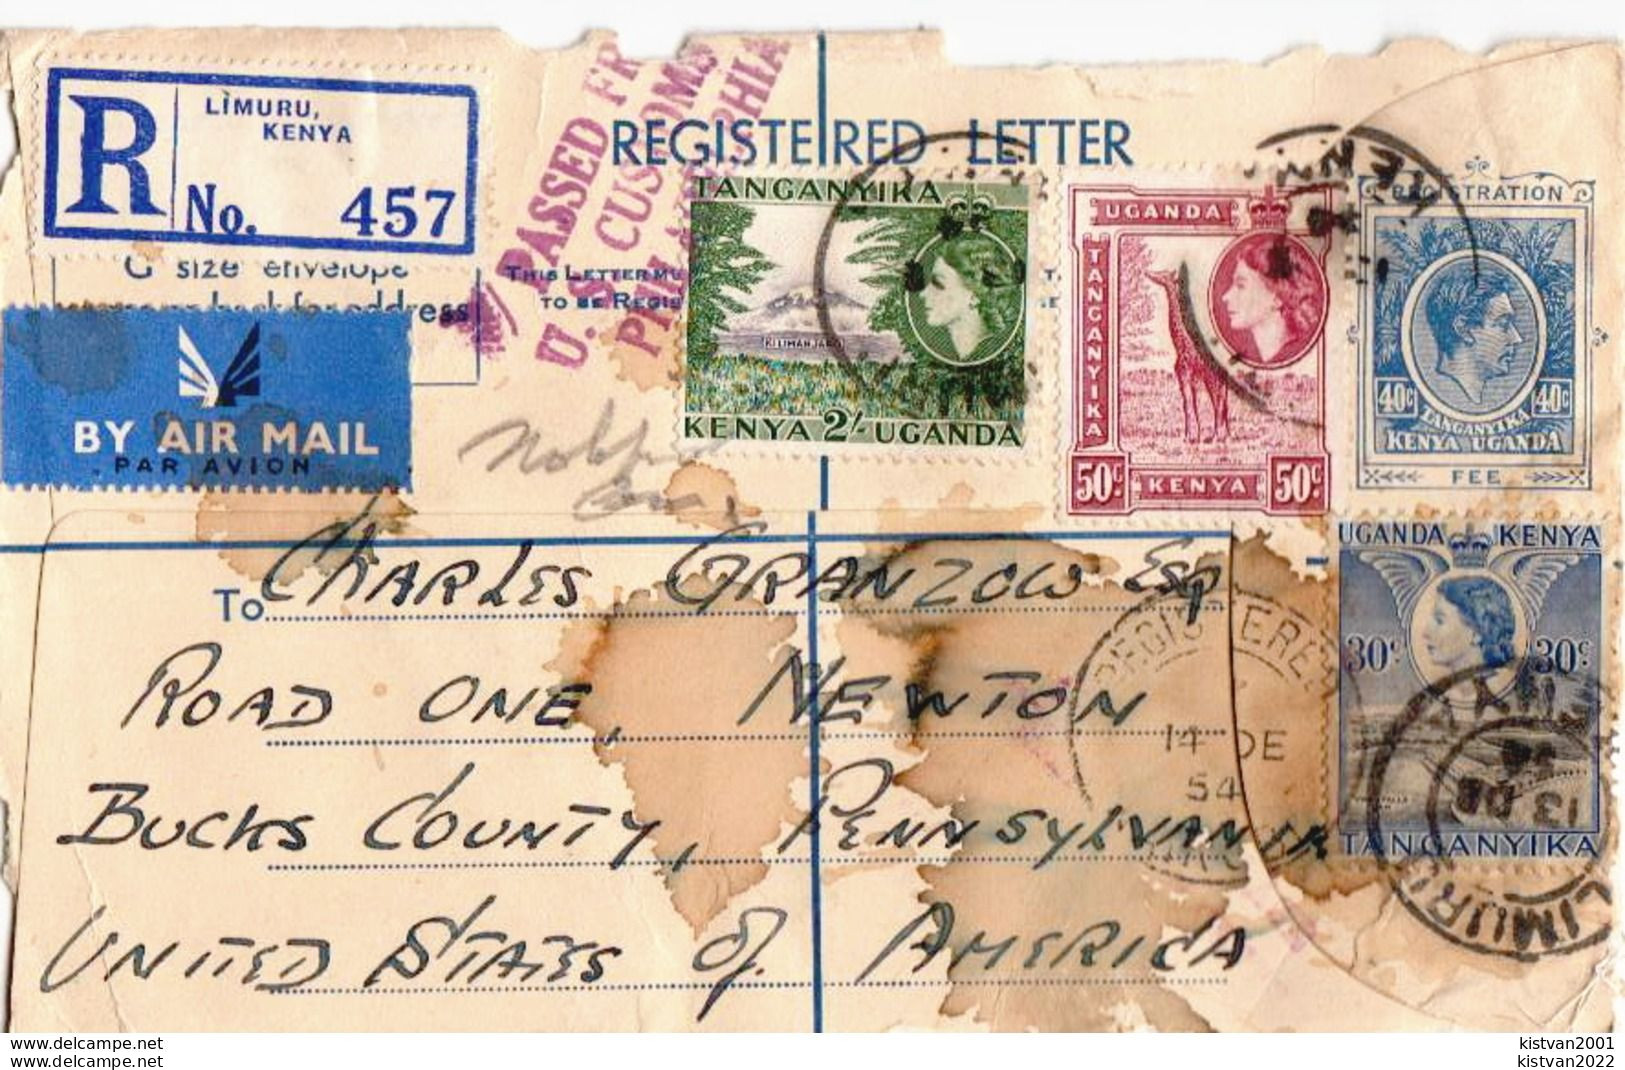 R
LIMURU,
KENYA
No. 457
PASSED FR
U. S. CUSTOMS
REGISTERED LETTER
G size envelope
for address
THIS LETTER MU
TO BE REGIS
BY AIR MAIL
PAR AVION
TANGANYIKA
KILIMANJARO
KENYA 2/- UGANDA
UGANDA
TANGANYIKA
TANGANYIKA
50c KENYA 50c
REGISTRATION
40c 40c
TANGANYIKA
KENYA UGANDA
FEE
UGANDA KENYA
30c 30c
TANGANYIKA
To Charles Granzow Esq
Road One, Newton
Bucks County, Pennsylvania
United States of America
REGISTERED
14 DE
54
KENYA
13 DE
LIMURU
kistvan2001
kistvan2022
kistvan2001
kistvan2022